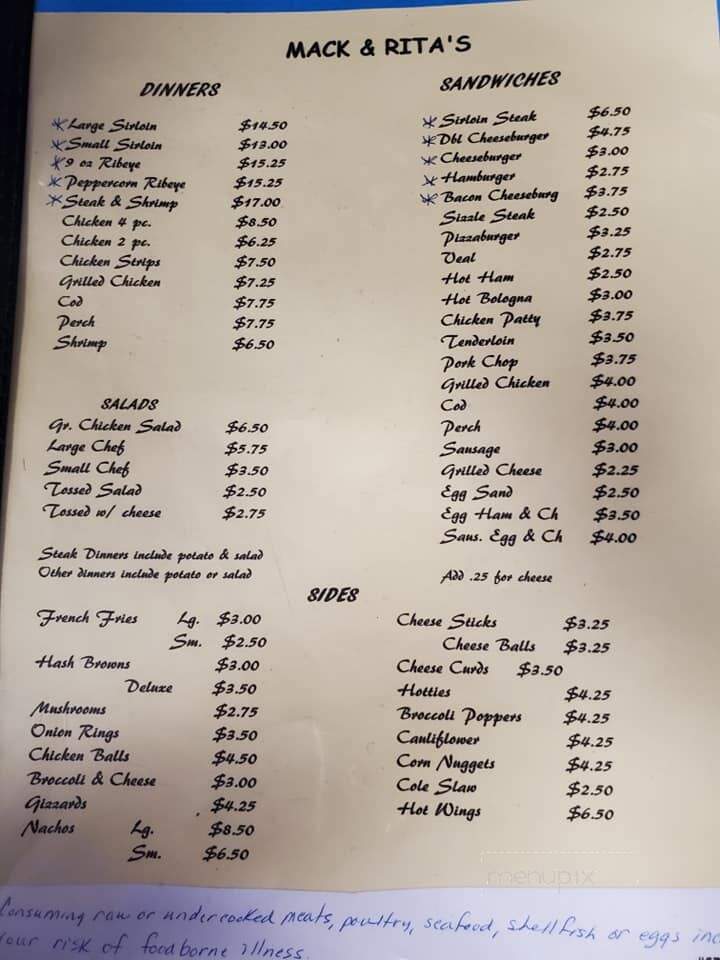 MACK & RITA'S
DINNERS
* Large Sirloin $14.50
* Small Sirloin $13.00
* 9 oz Ribeye $15.25
* Peppercorn Ribeye $15.25
* Steak & Shrimp $17.00
Chicken 4 pc. $8.50
Chicken 2 pc. $6.25
Chicken Strips $7.50
Grilled Chicken $7.25
Cod $7.75
Perch $7.75
Shrimp $6.50
SALADS
Gr. Chicken Salad $6.50
Large Chef $5.75
Small Chef $3.50
Tossed Salad $2.50
Tossed w/ cheese $2.75
Steak Dinners include potato & salad
Other dinners include potato or salad
SANDWICHES
* Sirloin Steak $6.50
* Dbl Cheeseburger $4.75
* Cheeseburger $3.00
* Hamburger $2.75
* Bacon Cheeseburg $3.75
Sizzle Steak $2.50
Pizzaburger $3.25
Veal $2.75
Hot Ham $2.50
Hot Bologna $3.00
Chicken Patty $3.75
Tenderloin $3.50
Pork Chop $3.75
Grilled Chicken $4.00
Cod $4.00
Perch $4.00
Sausage $3.00
Grilled Cheese $2.25
Egg Sand $2.50
Egg Ham & Ch $3.50
Saus. Egg & Ch $4.00
Add .25 for cheese
SIDES
French Fries Lg. $3.00
Sm. $2.50
Hash Browns $3.00
Deluxe $3.50
Mushrooms $2.75
Onion Rings $3.50
Chicken Balls $4.50
Broccoli & Cheese $3.00
Gizzards $4.25
Nachos Lg. $8.50
Sm. $6.50
Cheese Sticks $3.25
Cheese Balls $3.25
Cheese Curds $3.50
Hotties $4.25
Broccoli Poppers $4.25
Cauliflower $4.25
Corn Nuggets $4.25
Cole Slaw $2.50
Hot Wings $6.50
menupix
Consuming raw or undercooked meats, poultry, seafood, shellfish or eggs inc
your risk of foodborne illness.